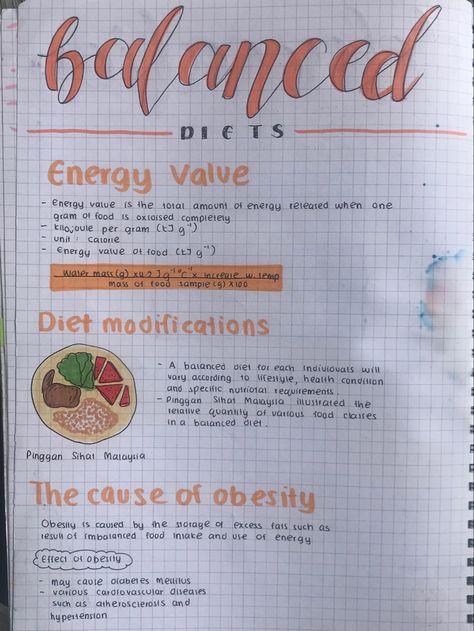 balanced
DIETS
Energy Value
- Energy value is the total amount of energy released when one
gram of food is oxidised completely
- kilojoule per gram (kJ g⁻¹)
- unit : calorie
- Energy value of food (kJ g⁻¹)
Water mass (g) x 4.2 J g⁻¹ °C⁻¹ x increase w. temp
mass of food sample (g) x 100
Diet modifications
- A balanced diet for each individuals will
vary according to lifestyle, health condition
and specific nutriotal requirements.
- Pinggan Sihat Malaysia illustrated the
relative quantity of various food classes
in a balanced diet.
Pinggan Sihat Malaysia
The cause of obesity
Obesity is caused by the storage of excess fats such as
result of imbalanced food intake and use of energy
Effect of obesity
- may cause diabetes mellitus
- various cardiovascular diseases
such as atherosclerosis and
hypertension